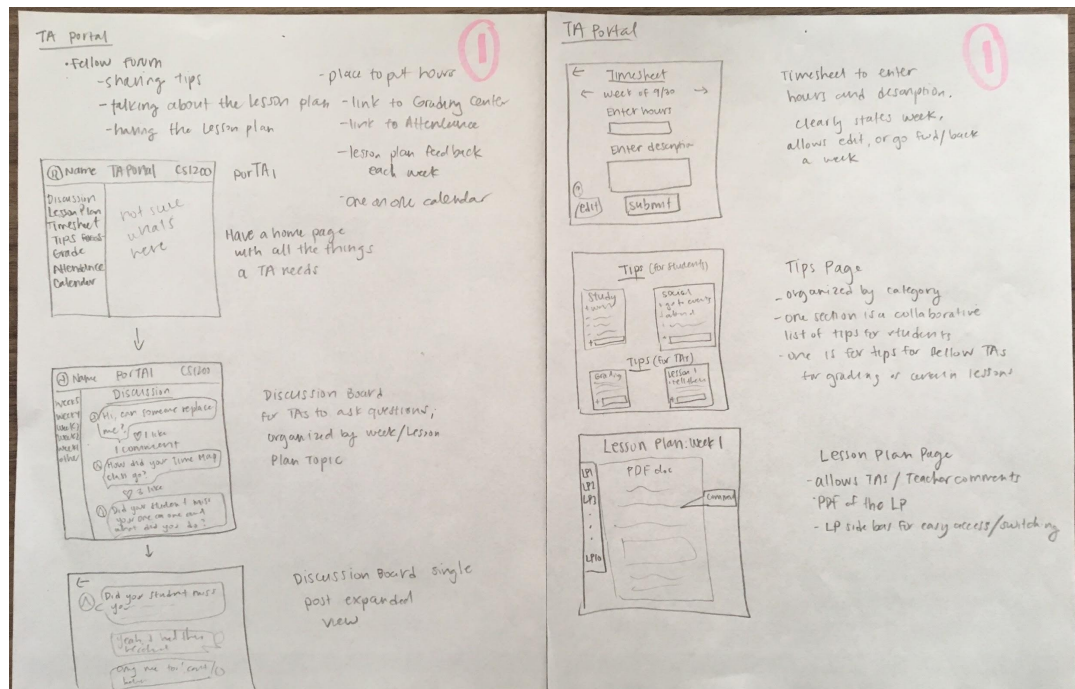 TA Portal
1
• Fellow forum
- sharing tips
- talking about the lesson plan
- having the lesson plan
- place to put hours
- link to Grading Center
- link to Attendance
- lesson plan feedback
each week
- one on one calendar
Name TA Portal CS1200
Discussion
Lesson Plan
Timesheet
Tips
Grade
Attendance
Calendar
not sure
whats
here
PorTA1
Have a home page
with all the things
a TA needs
Name PorTA1 CS1200
Discussion
week
week
week
week
other
Hi, can someone replace
me?
1 like
1 comment
How did your Time Map
class go?
3 like
Did your student miss
your one on one and
what did you do?
Discussion Board
for TAs to ask questions,
organized by week/Lesson
Plan Topic
Did your student miss
you
Yeah I had them
Discussion Board single
post expanded
view
TA Portal
1
Timesheet
← week of 9/20 →
Enter hours
Enter description
edit
submit
Timesheet to enter
hours and description.
clearly states week,
allows edit, or go fwd/back
a week
Tips (for students)
Study
social
go to events
Tips (for TAs)
Grading
Lesson 1
Tips Page
- organized by category
- one section is a collaborative
list of tips for students
- one is for tips for fellow TAs
for grading or certain lessons
Lesson Plan: Week 1
LP1
LP2
LP3
LP10
PDF doc
comment
Lesson Plan Page
- allows TAs/Teacher comments
• PDF of the LP
- LP side bar for easy access/switching